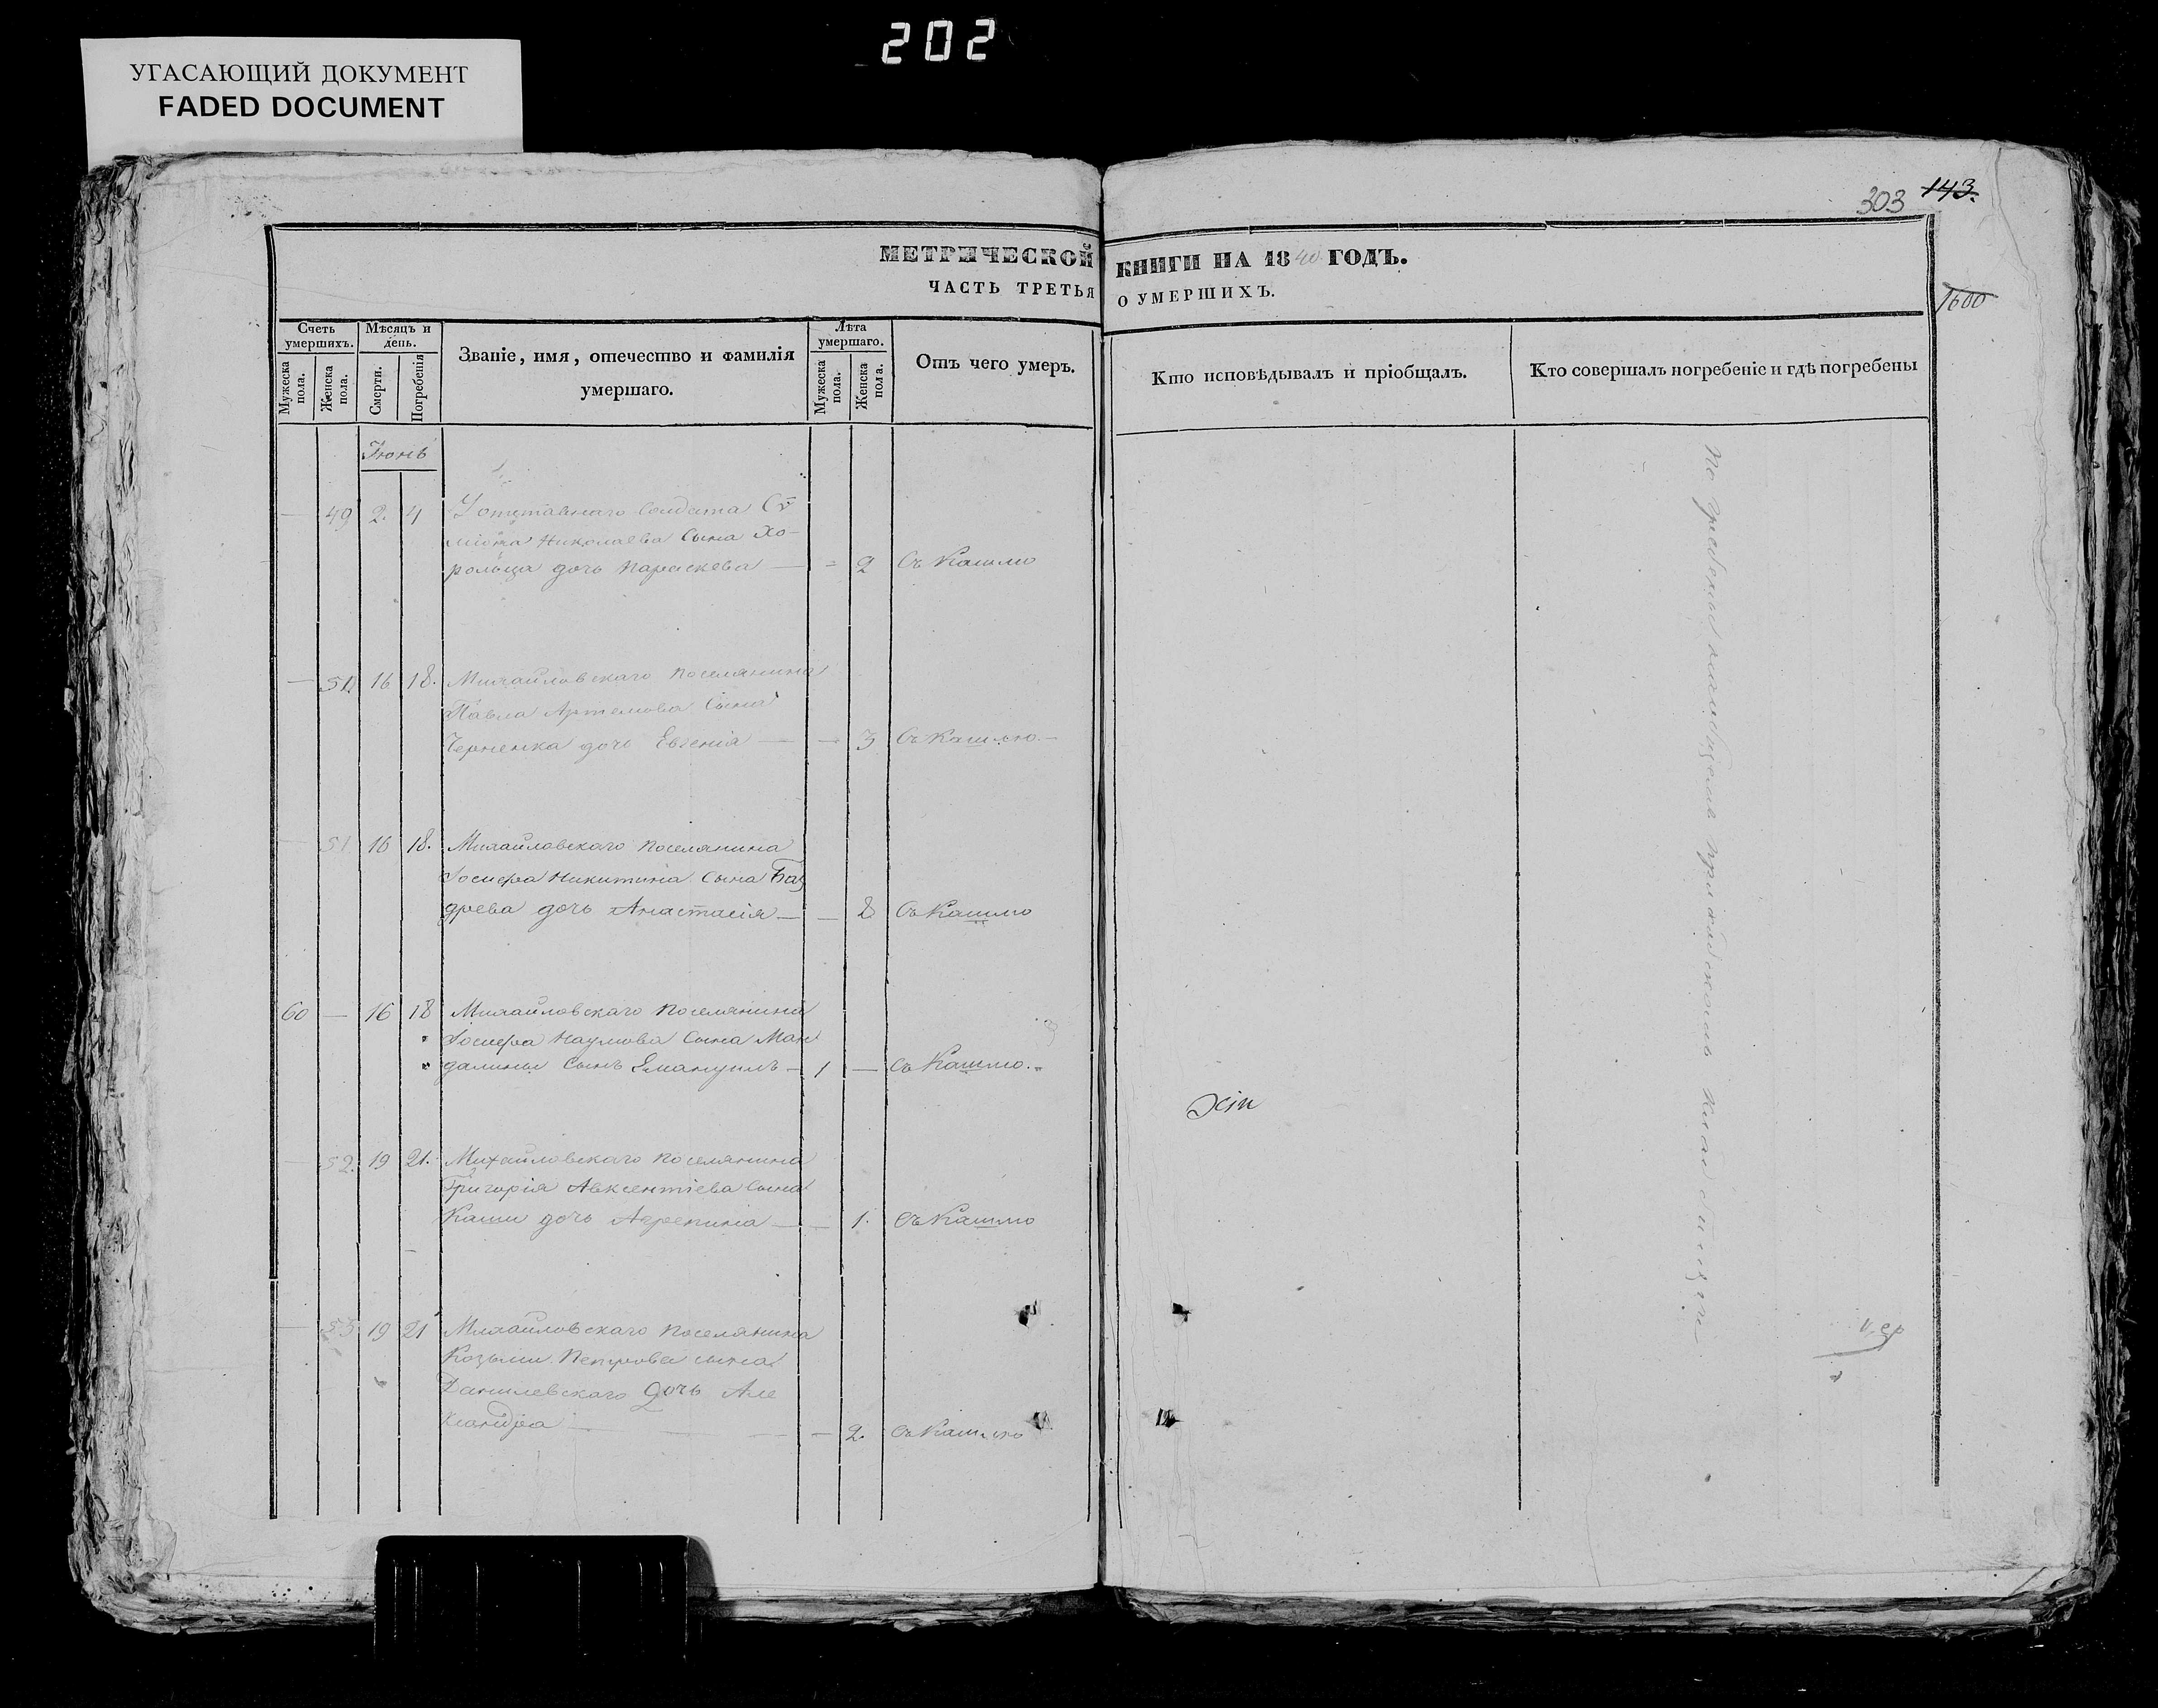 202
УГАСАЮЩИЙ ДОКУМЕНТ
FADED DOCUMENT
303 143.
МЕТРИЧЕСКОЙ КНИГИ НА 1840 ГОДЪ.
ЧАСТЬ ТРЕТЬЯ О УМЕРШИХЪ.
1600
Счетъ умершихъ.
Мужеска пола.
Женска пола.
Мѣсяцъ и день.
Смерти.
Погребенія
Званіе, имя, отечество и фамилія умершаго.
Лѣта умершаго.
Мужеска пола.
Женска пола.
Отъ чего умеръ.
Кто исповѣдывалъ и пріобщалъ.
Кто совершалъ погребеніе и гдѣ погребены
Іюнь
— 49 2. 4 Уотставнаго Солдата
Николаева Сына Хо-
рольца дочь Параскева — 2 Съ Кашлю
— 16 18. Михайловскаго Поселянина
Павла Артемова Сына
Черненка дочь Евгенія — — 3 Съ Кашлю. —
— 51 16 18. Михайловскаго Поселянина
Іосифа Никитина Сына Баз
древа дочь Анастасія — — 2 Съ Кашлю
60 — 16 18 Михайловскаго Поселянина
Іосифа Наумова Сына Ман
далины Сынъ Емануилъ — 1 — Съ Кашлю.
— 52. 19 21. Михайловскаго Поселянина
Григорія Авксентіева Сына
Каши дочь Агрепина — — 1. Съ Кашлю
— 53 19 21 Михайловскаго Поселянина
Козьми Петрова сына
Данилевскаго Дочь Але
ксандра — — 2. Съ Кашлю